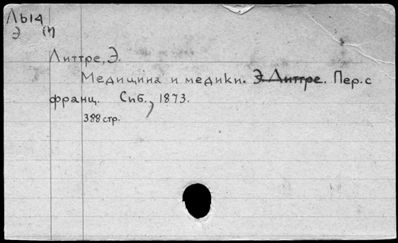 Лы14
Э (1)
Литтре, Э.
Медицина и медики. Э. Литтре. Пер. с
франц. Спб., 1873.
388 стр.